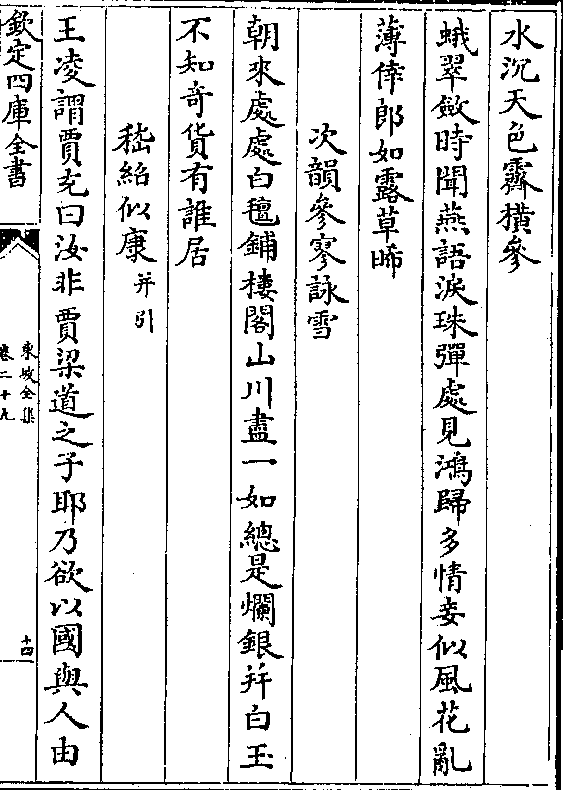 水沉天色霽横參
蛾翠斂時聞燕語淚珠彈處見鴻歸多情妾似風花亂
薄倖郎如露草晞
次韻參寥詠雪
朝來處處白氊鋪樓閣山川盡一如總是爛銀并白玉
不知奇貨有誰居
嵇紹似康并引
王凌謂賈充曰汝非賈梁道之子耶乃欲以國與人由
欽定四庫全書
東坡全集
卷二十九
十四